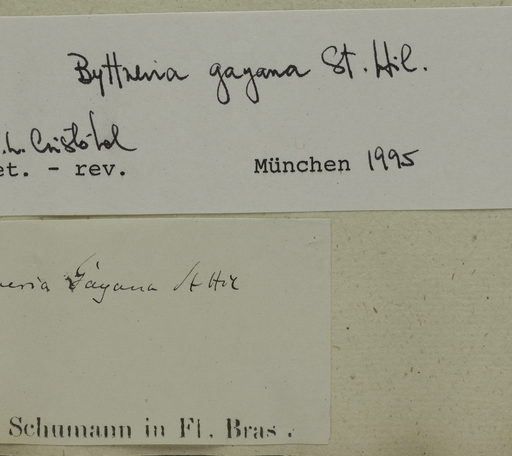 Byttneria gayana St. Hil.
.L. Cristóbal
et. - rev. München 1995
neria Gayana St Hil
Schumann in Fl. Bras.